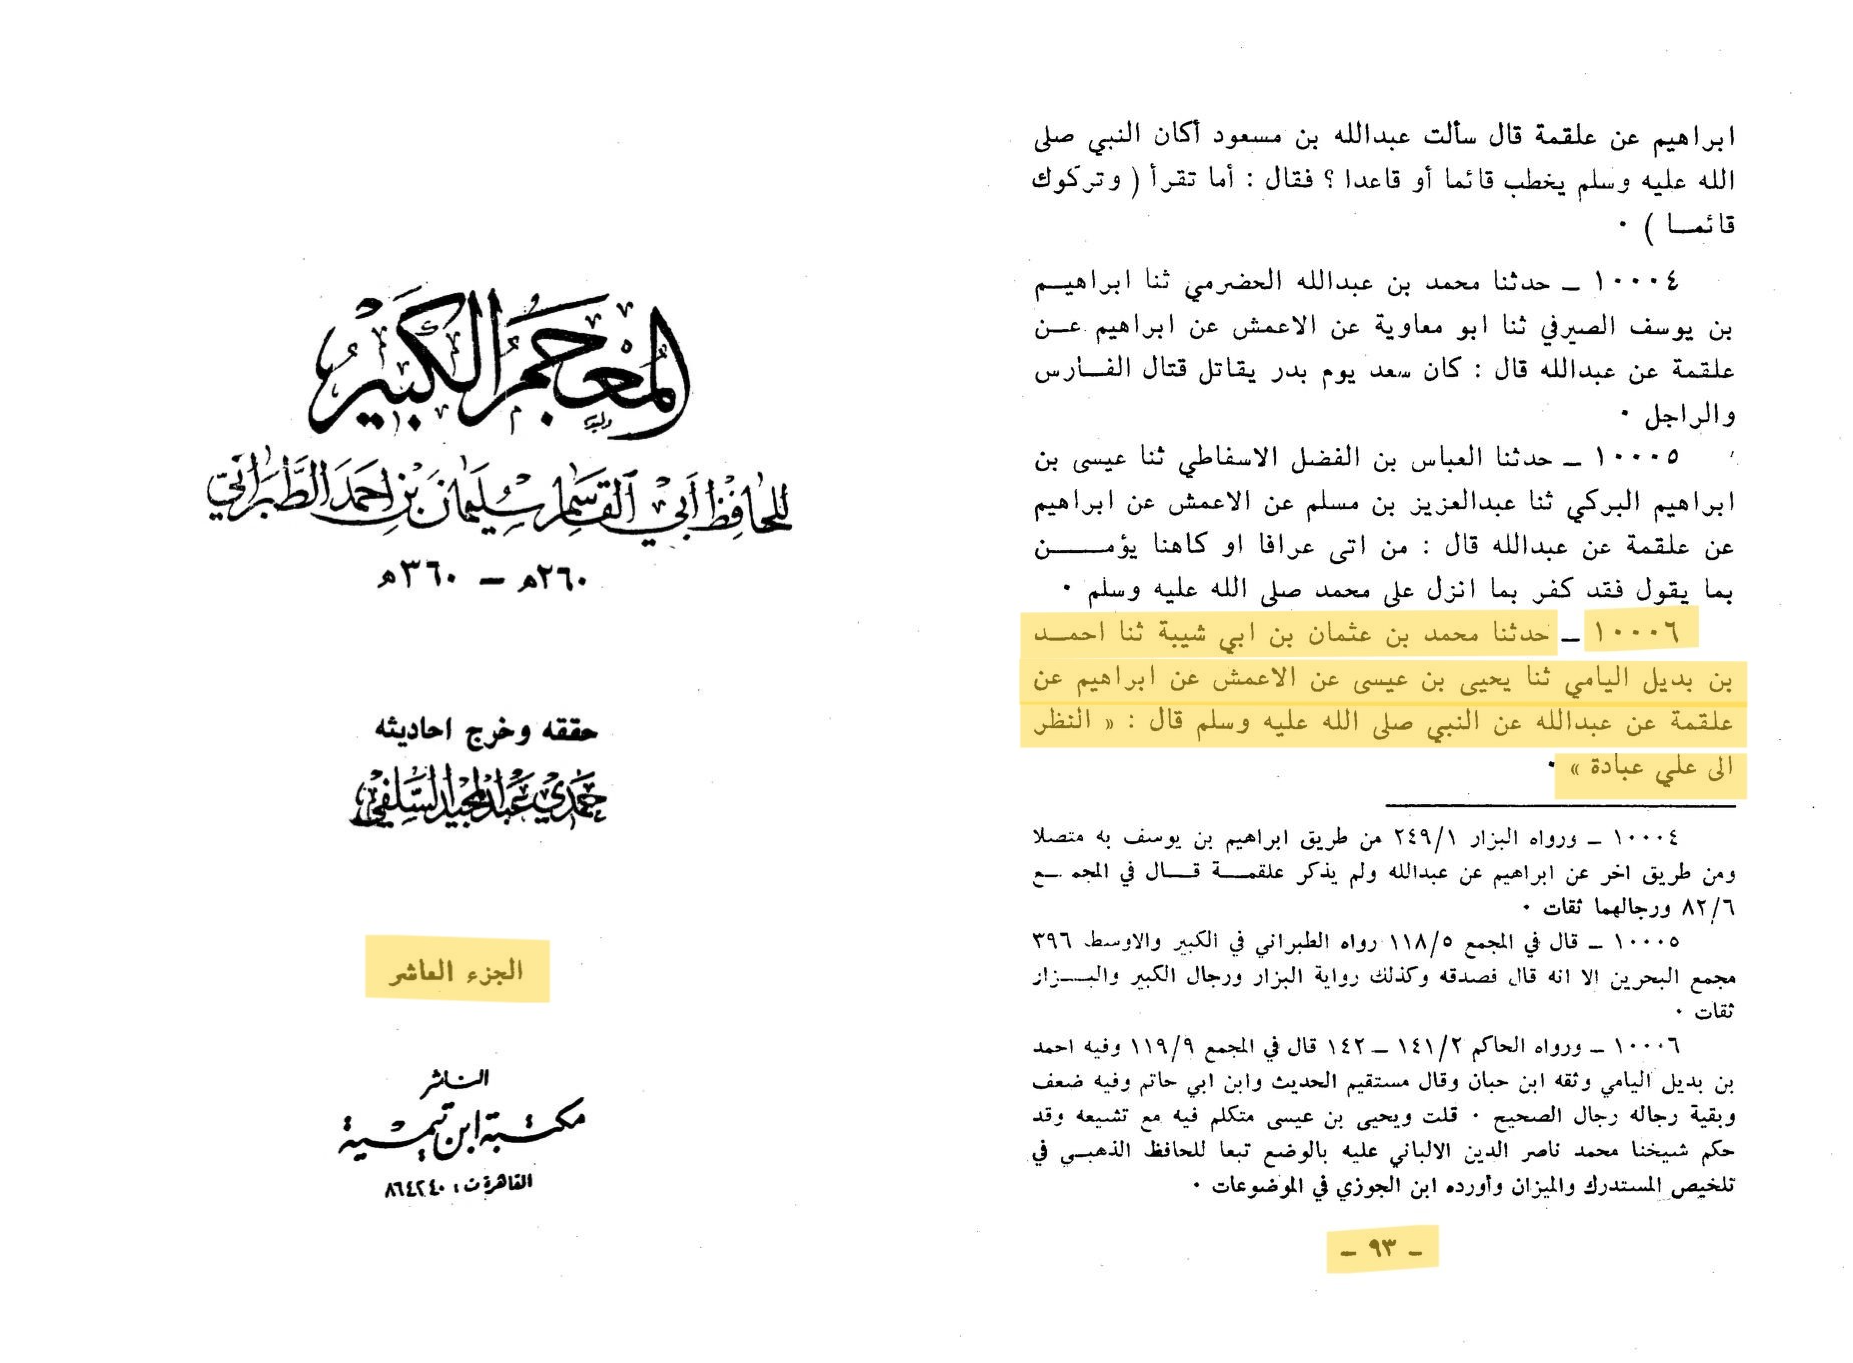 المعجم الكبير
للحافظ أبي القاسم سليمان بن احمد الطبراني
٢٦٠ه – ٣٦٠ه
حققه وخرج احاديثه
حمدي عبد المجيد السلفي
الجزء العاشر
الناشر
مكتبة ابن تيمية
القاهرة ت : ٨٦٤٢٤٠
ابراهيم عن علقمة قال سألت عبدالله بن مسعود أكان النبي صلى
الله عليه وسلم يخطب قائما أو قاعدا ؟ فقال : أما تقرأ ( وتركوك
قائمـا ) ٠
١٠٠٠٤ ـ حدثنا محمد بن عبدالله الحضرمي ثنا ابراهيـم
بن يوسف الصيرفي ثنا ابو معاوية عن الاعمش عن ابراهيم عـن
علقمة عن عبدالله قال : كان سعد يوم بدر يقاتل قتال الفـارس
والراجل ٠
١٠٠٠٥ ـ حدثنا العباس بن الفضل الاسفاطي ثنا عيسى بن
ابراهيم البركي ثنا عبدالعزيز بن مسلم عن الاعمش عن ابراهيم
عن علقمة عن عبدالله قال : من اتى عرافا او كاهنا يؤمـــن
بما يقول فقد كفر بما انزل على محمد صلى الله عليه وسلم ٠
١٠٠٠٦ ـ حدثنا محمد بن عثمان بن ابي شيبة ثنا احمـد
بن بديل اليامي ثنا يحيى بن عيسى عن الاعمش عن ابراهيم عن
علقمة عن عبدالله عن النبي صلى الله عليه وسلم قال : « النظر
الى علي عبادة » ٠
١٠٠٠٤ ـ ورواه البزار ٢٤٩/١ من طريق ابراهيم بن يوسف به متصلا
ومن طريق اخر عن ابراهيم عن عبدالله ولم يذكر علقمـة قـال في المجمـع
٨٢/٦ ورجالهما ثقات ٠
١٠٠٠٥ ـ قال في المجمع ١١٨/٥ رواه الطبراني في الكبير والاوسط ٣٩٦
مجمع البحرين الا انه قال فصدقه وكذلك رواية البزار ورجال الكبير والبـزار
ثقات ٠
١٠٠٠٦ ـ ورواه الحاكم ١٤١/٢ ـ ١٤٢ قال في المجمع ١١٩/٩ وفيه احمد
بن بديل اليامي وثقه ابن حبان وقال مستقيم الحديث وابن ابي حاتم وفيه ضعف
وبقية رجاله رجال الصحيح ٠ قلت ويحيى بن عيسى متكلم فيه مع تشيعه وقد
حكم شيخنا محمد ناصر الدين الالباني عليه بالوضع تبعا للحافظ الذهبـي في
تلخيص المستدرك والميزان وأورده ابن الجوزي في الموضوعات ٠
ـ ٩٣ ـ